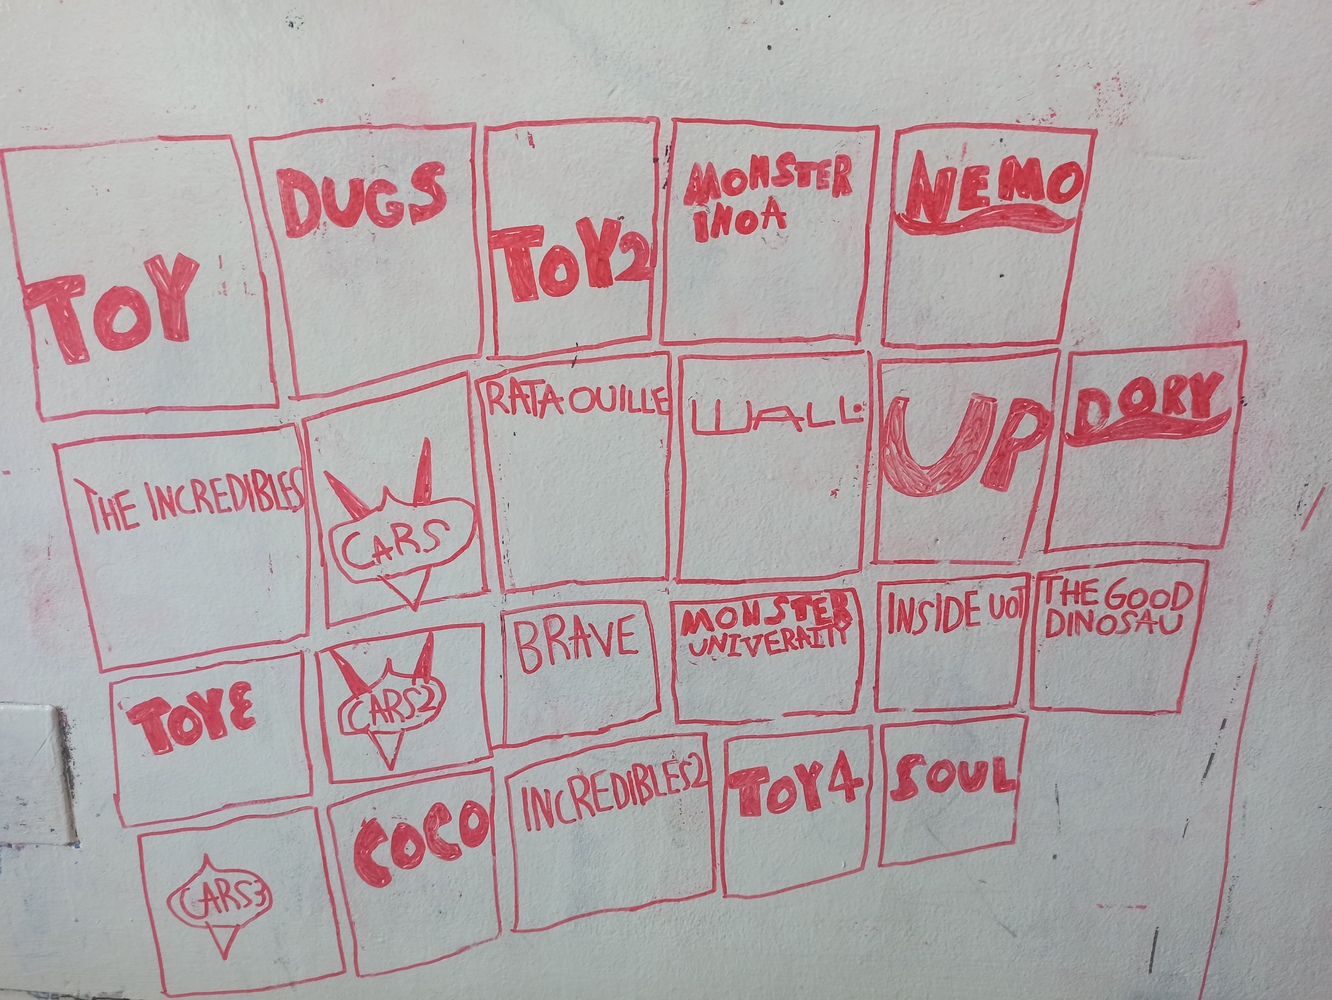 TOY
DUGS
TOY2
MONSTER
INOA
NEMO
THE INCREDIBLES
CARS
RATAOUILLE
WALL·
UP
DORY
TOY3
CARS2
BRAVE
MONSTER
UNIVERAITY
INSIDE UOT
THE GOOD
DINOSAU
CARS3
COCO
INCREDIBLES2
TOY4
SOUL